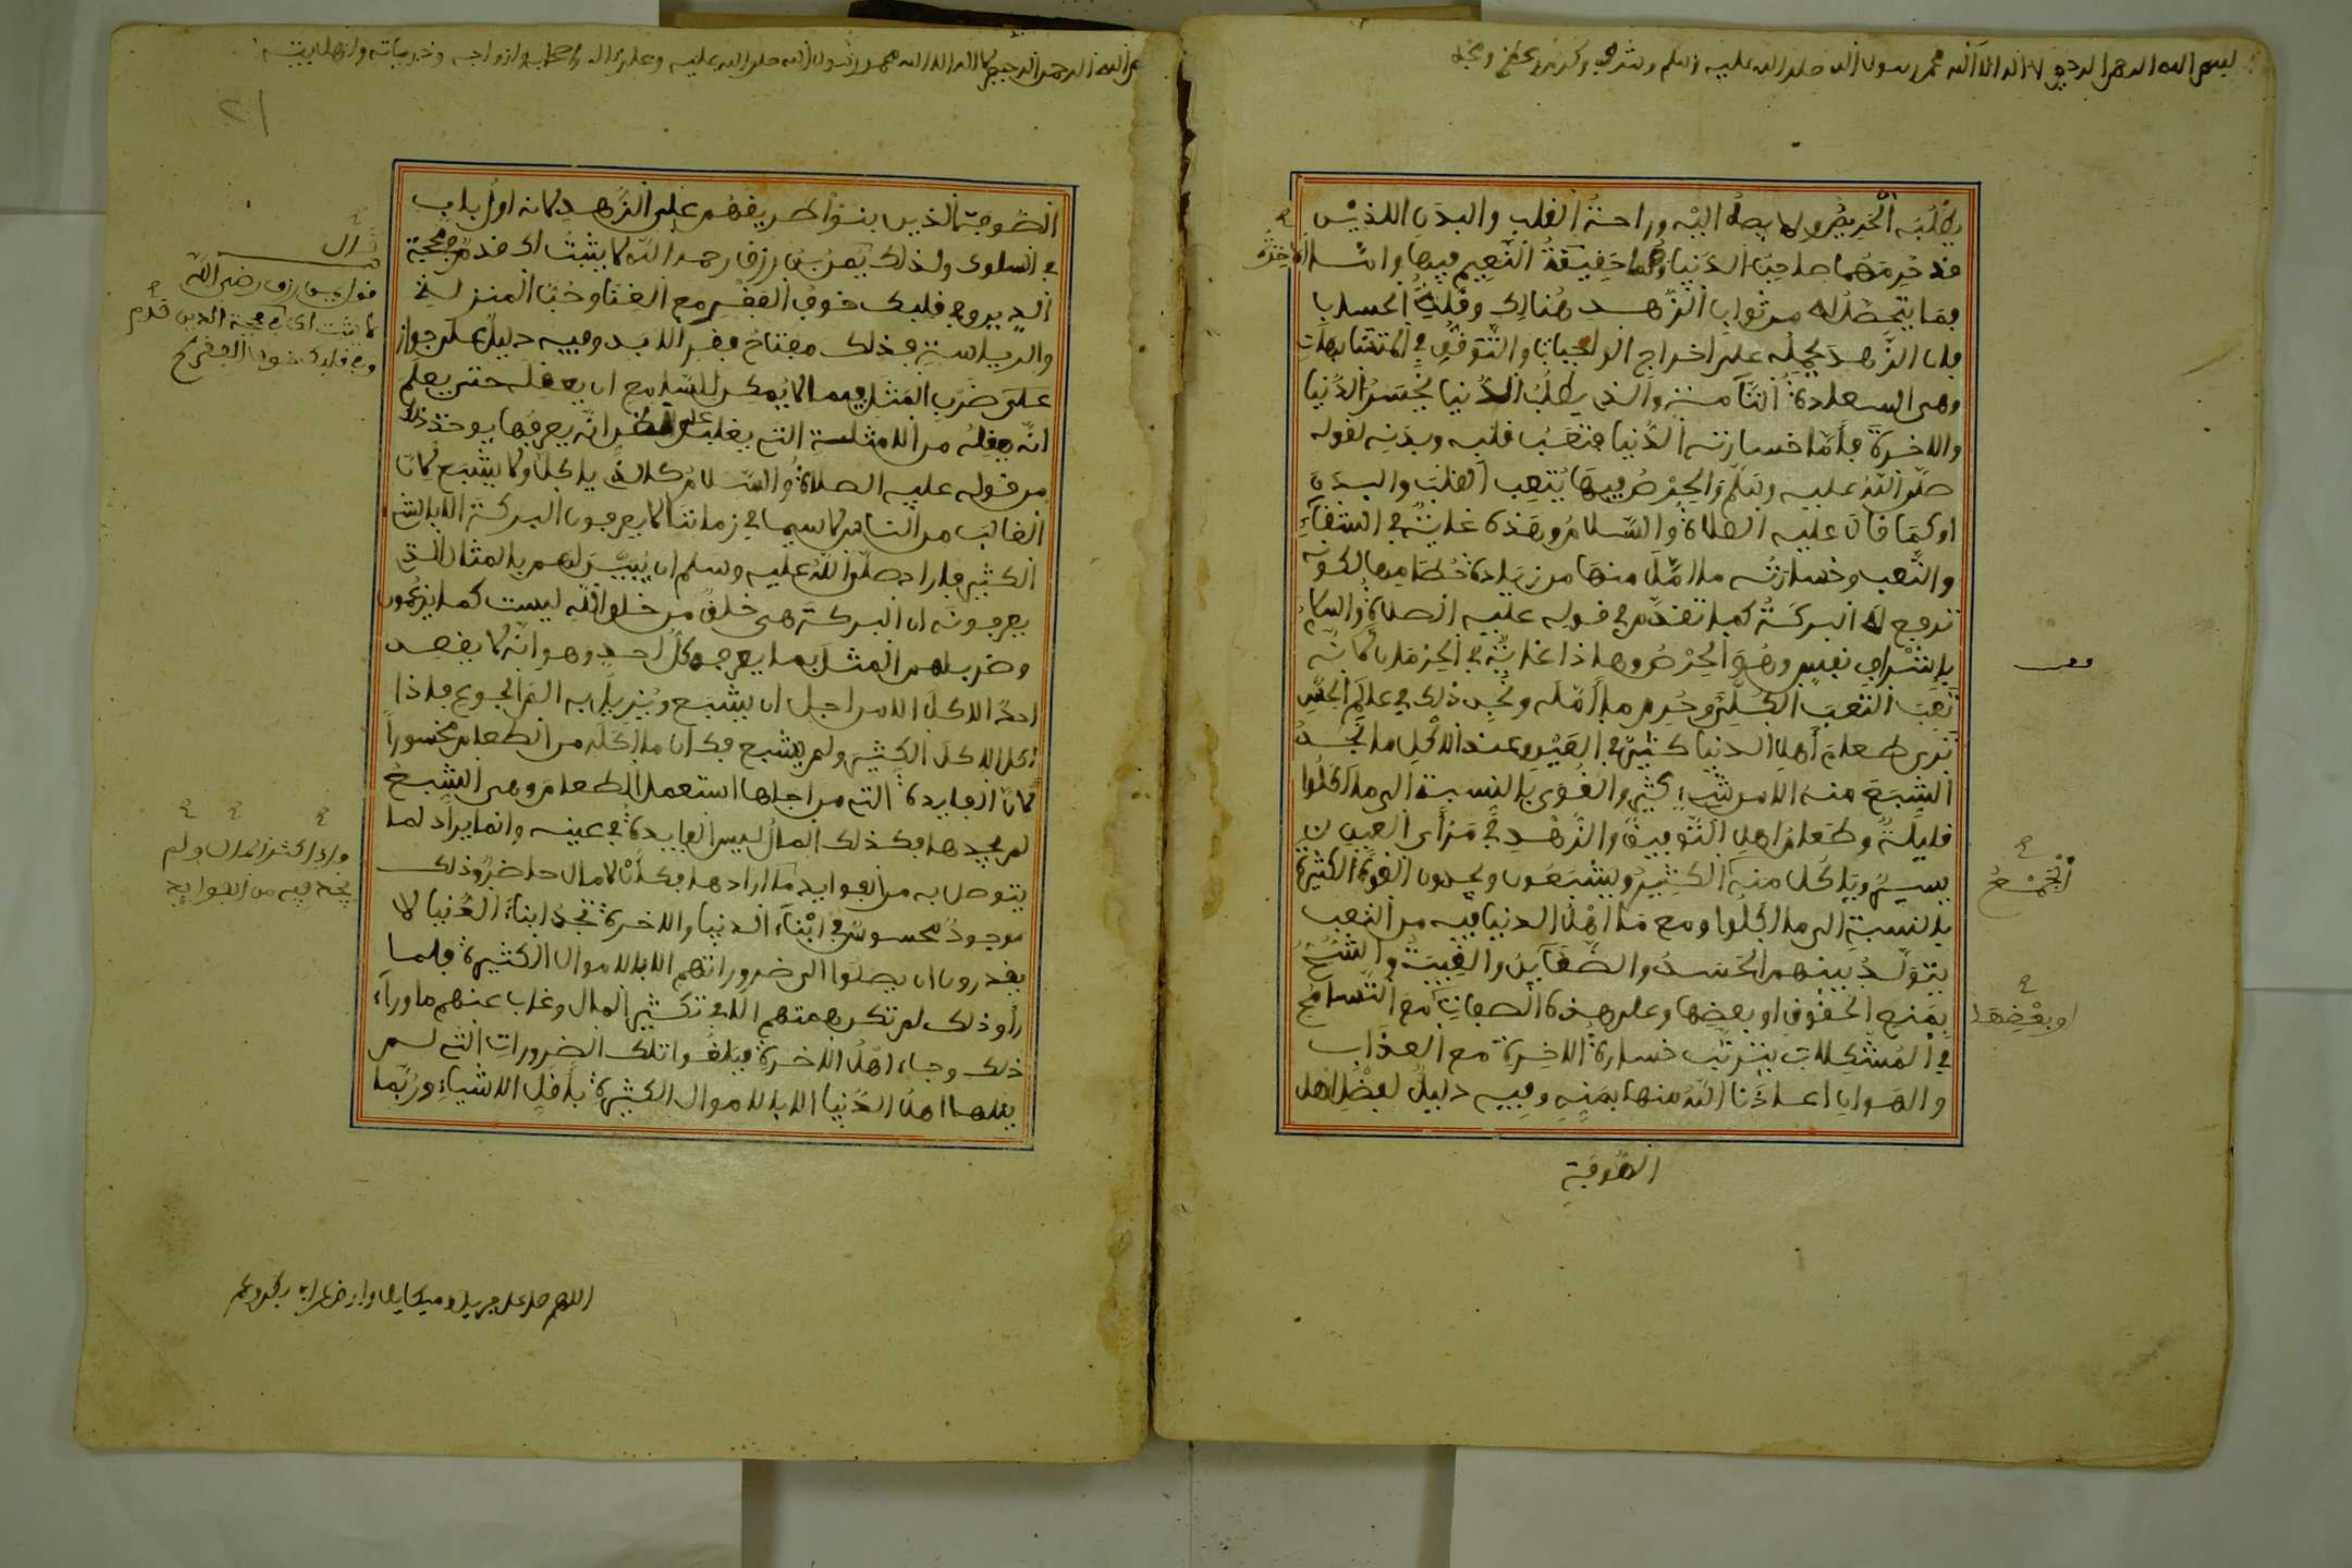 بسم الله الرحمن الرحيم لا اله الا الله محمد رسول الله صلى الله عليه وسلم وشرف وكرم وعظم ومجد
يطلبه الحريص ولا يصل اليه وراحة القلب والبدن اللذين
قد حرمهما صاحب الدنيا وهما حقيقة النعيم فيها واما الاخرة
فما يتحصل له من ثواب الزهد هنالك وقلة الحساب
فان الزهد يحمله على اخراج الواجبات والتوقف في المتشابهات
وهى السعادة التامة والذي يطلب الدنيا يخسر الدنيا
والاخرة فأما خسارته الدنيا فتعب قلبه وبدنه لقوله
صلى الله عليه وسلم والحرص فيها يتعب القلب والبدن
او كما قال عليه الصلاة والسلام وهذه غاية في الشقاء
والتعب وخسارته ما امل منها من زيادة حطامها لكونه
ترفع له البركة كما تقدم في قوله عليه الصلاة والسلام
باشراف نفس وهو الحرص وهاذا غاية في الحرمان لانه
تعب التعب الكلي وحرم ما أمله وتجد ذلك في عالم الحس
ترى طعام أهل الدنيا كثيرا في العين وعند الاكل ما تجد
الشبع منه الا من شيء كثير والقوى بالنسبة الى ما اكلوا
قليلة وطعام اهل التوفيق والزهد في مرأى العين
يسير وياكل منه الكثير ويشبعون ويجدون القوة الكثيرة
الجمع
بالنسبة الى ما اكلوا ومع ما اهل الدنيا فيه من التعب
يتولد بينهم الحسد والضغاين والغيبة والشح
بمنع الحقوق او بعضها وعلى هذه الصفات مع التسامح
او بعضها
في المشكلات يترتب خسارة الاخرة مع العذاب
والهوان اعاذنا الله منها بمنه وفيه دليل لبعض اهل
الصوفية
بسم الله الرحمن الرحيم لا اله الا الله محمد رسول الله صلى الله عليه وعلى اله واصحابه وازواجه وذرياته واهل بيته
٢١
الصوفية الذين بنوا طريقهم على الزهد لانه اول باب
في السلوك ولذلك يمن بن رزق رحمه الله لا يثبت لك قدم في محجة
الدين وفي قلبك خوف الفقر مع الغنا وحب المنزلة
قال
يمن بن رزق رضي الله
لا يثبت لك في محجة الدين قدم
وفي قلبك خوف الفقر
والرياسة فذلك مفتاح فقر الابد وفيه دليل على جواز
على ضرب المثل فيما لا يمكن للسامع ان يعقله حتى يعلم
انه يعقله من الامثلة التي يغلب على الظن انه يعرفها يوخذ ذلك
من قوله عليه الصلاة والسلام كالذي ياكل ولا يشبع لان
الغالب من الناس لا سيما في زماننا لا يعرفون البركة الا بالشيء
الكثير فاراد صلى الله عليه وسلم ان يبين لهم بالمثال الذي
يعرفونه ان البركة هي خلق من خلق الله ليست كما يزعمون
وضرب لهم المثل بما يعرفه كل احد وهو انه لا يقصد
احد الاكل الا من اجل ان يشبع ويزيل به الم الجوع فاذا
اكل الاكل الكثير ولم يشبع فكان ما اكله من الطعام مخسورا
لان الفايدة التي من اجلها استعمل الطعام وهي الشبع
لم يجدها فكذلك المال ليس الفايدة في عينه وانما يراد لما
واذا كثر المال ولم
يجد فيه من الفوايد
يتوصل به من الفوايد ما ارادها فكأن لا مال حاضر وذلك
موجود محسوس في ابناء الدنيا والاخرة تجد ابناء الدنيا لا
يقدرون ان يصلوا الى ضروراتهم الا بالاموال الكثيرة فلما
رأو ذلك لم تكن همتهم الا في تكثير المال وغاب عنهم ما وراء
ذلك وجاء اهل الاخرة فبلغوا تلك الضرورات التي لم
يبلغها اهل الدنيا الا بالاموال الكثيرة باقل الاشياء وربما
اللهم صل على جبريل وميكايل